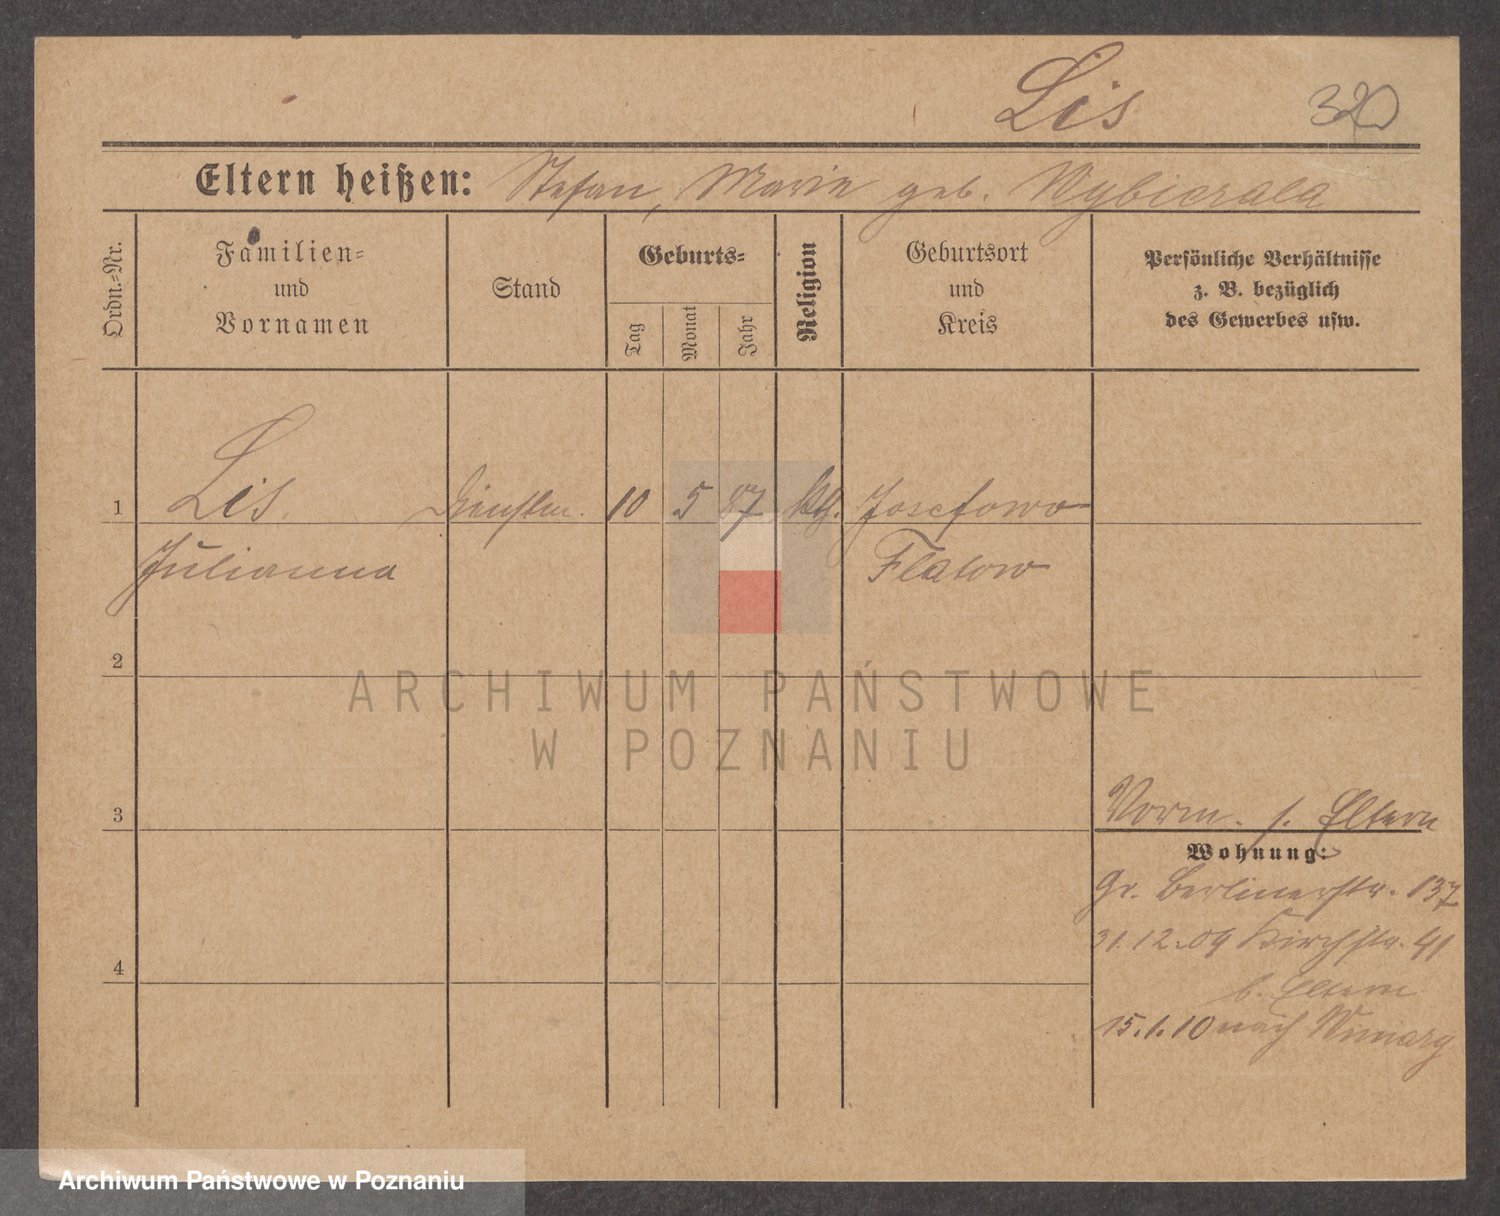 Lis 320
Eltern heißen: Stefan, Marie geb. Wybierala
Ordn.-Nr.
Familien-
und
Vornamen
Stand
Geburts-
Tag
Monat
Jahr
Religion
Geburtsort
und
Kreis
Persönliche Verhältnisse
z. B. bezüglich
des Gewerbes usw.
1 Lis Dienstm. 10 5 87 kth. Josefowo
Julianna Flatow
2
ARCHIWUM PAŃSTWOWE
W POZNANIU
3
Vorm. s. Eltern
Wohnung:
Gr. Berlinerstr. 137
31.12.09 Kirchstr. 41
4
b. Eltern
15.1.10 nach
Archiwum Państwowe w Poznaniu